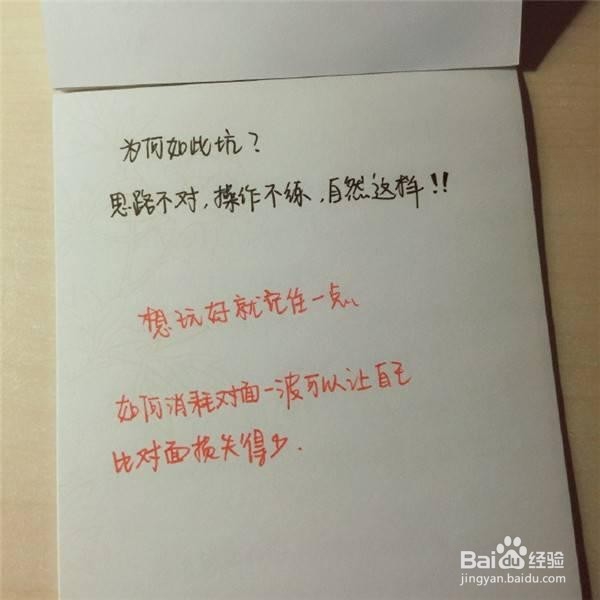 为何如此坑？
思路不对，操作不练，自然这样！！
想玩好就记住一点、
如何消耗对面一波可以让自己
比对面损失得少．
Baidu经验
jingyan.baidu.com